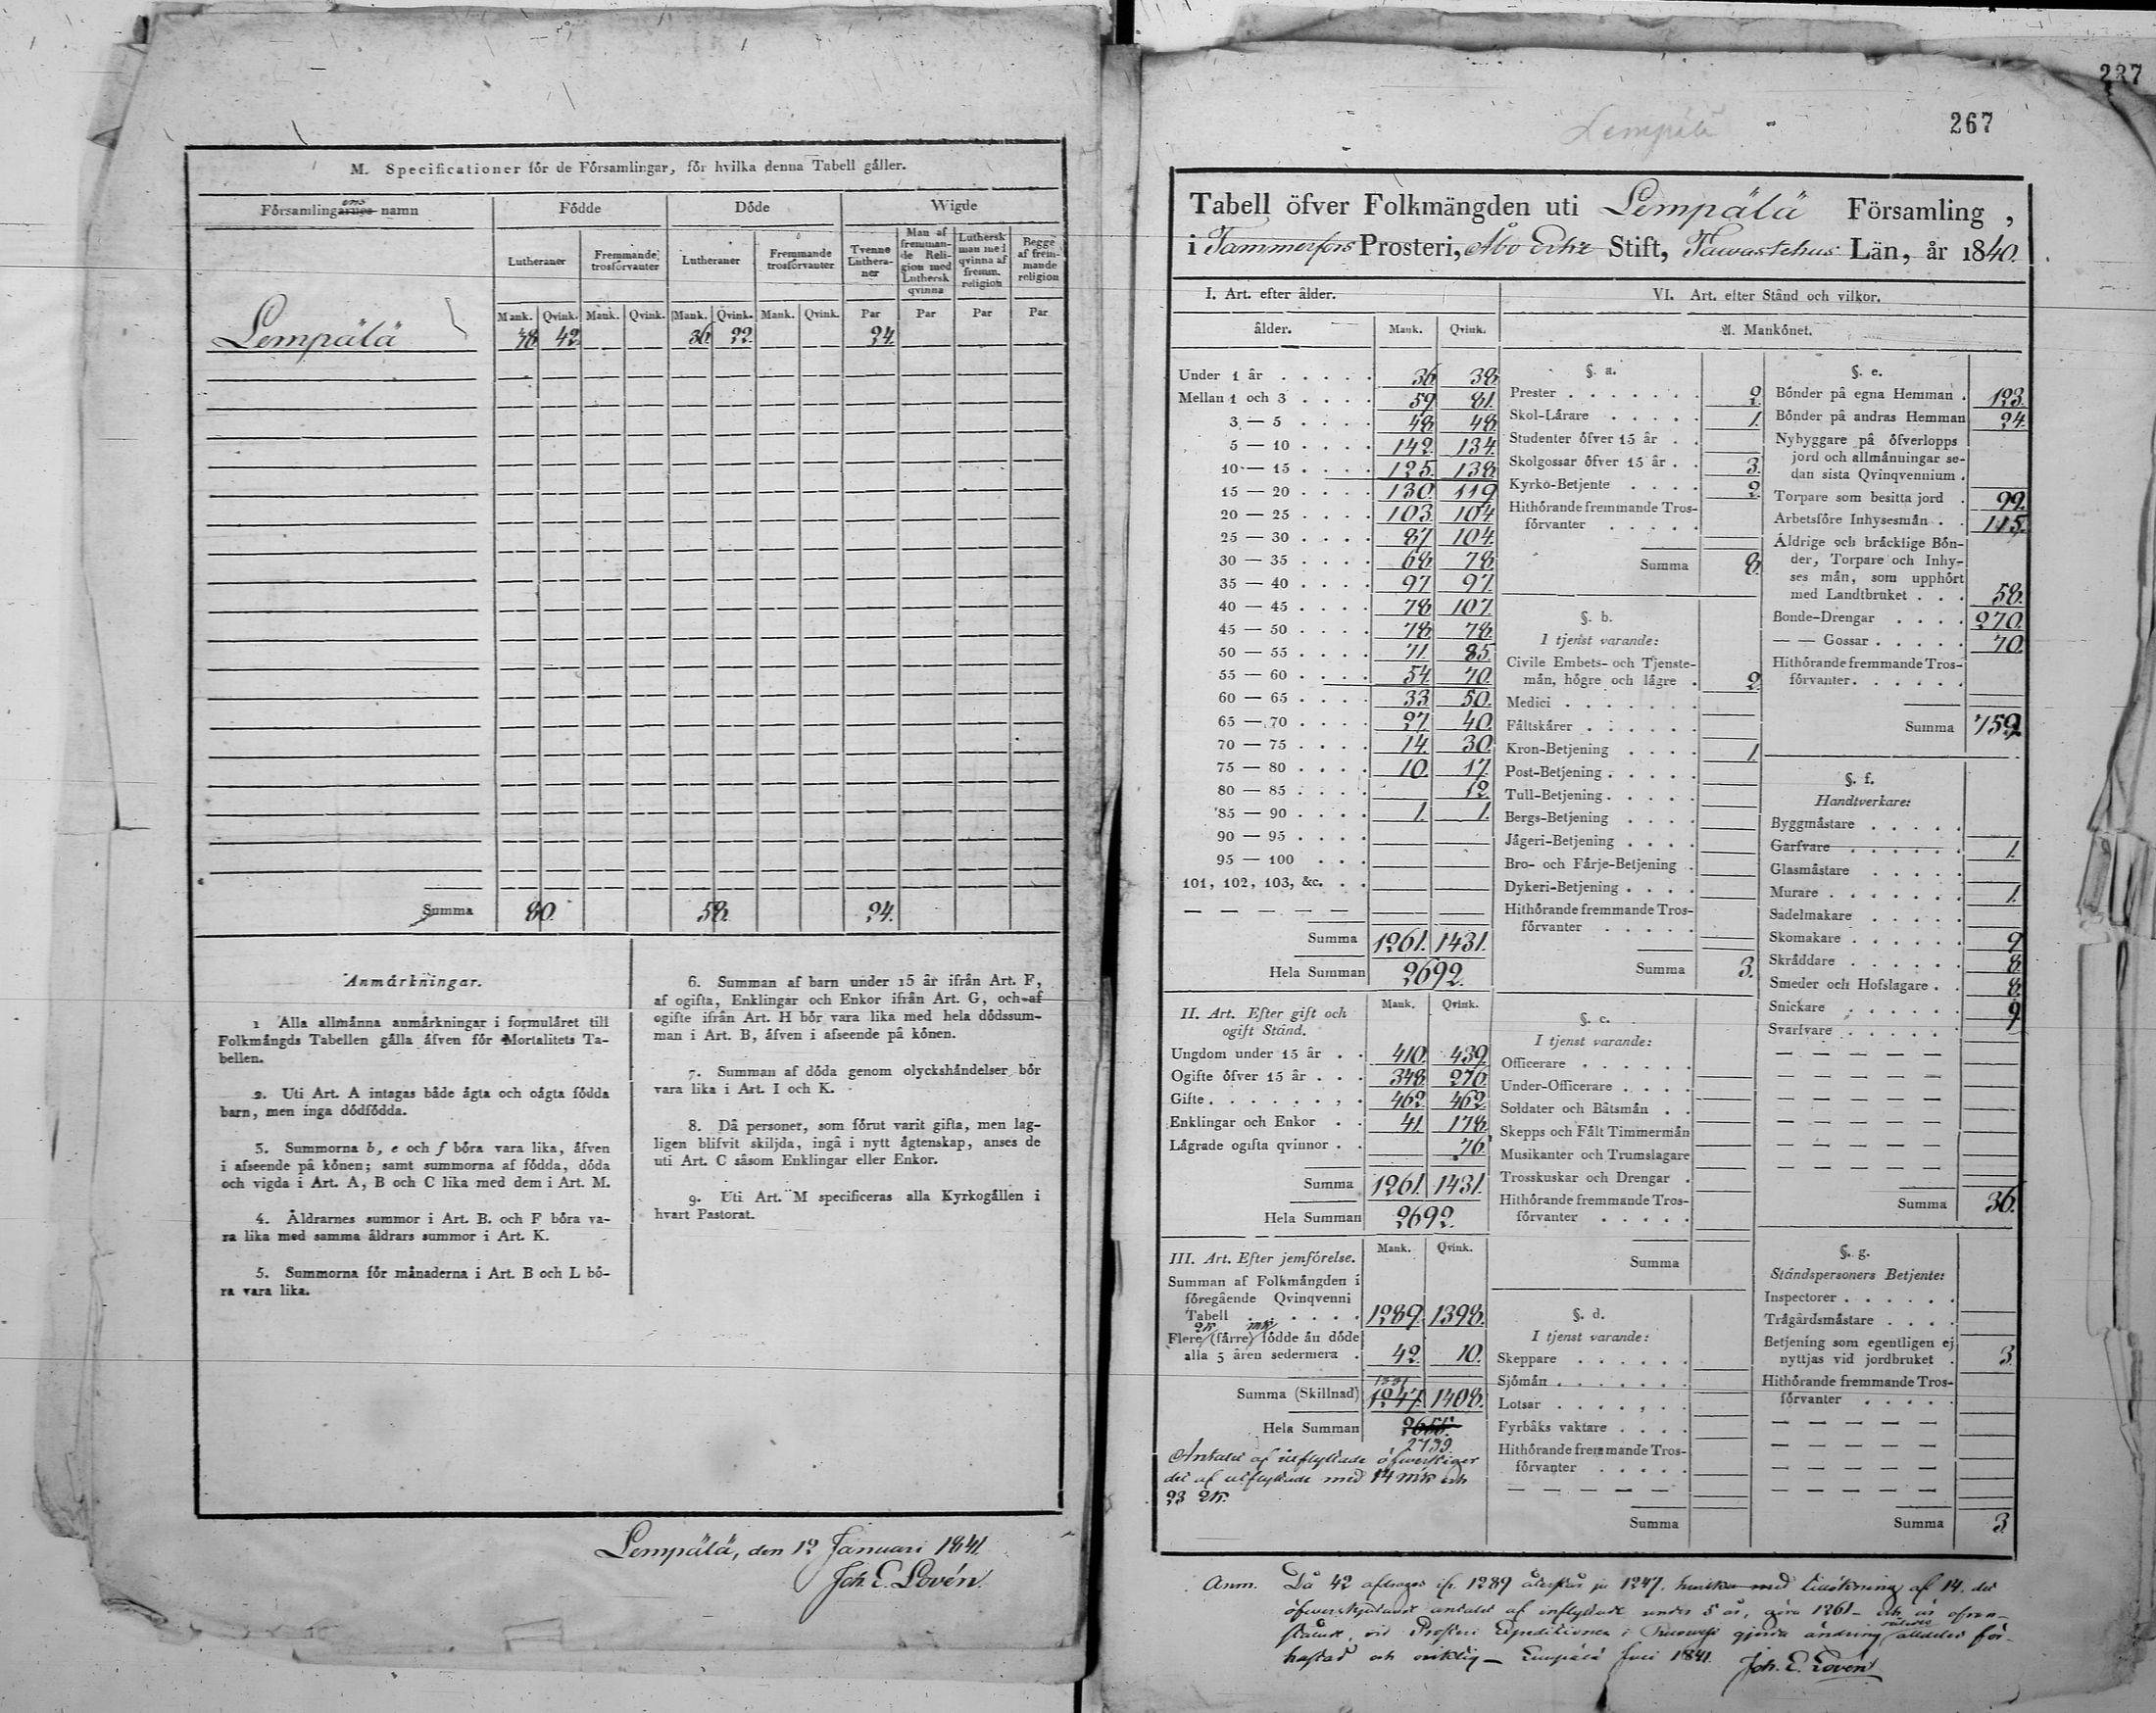 M. Specificationer för de Församlingar, för hvilka denna Tabell gäller.
Församlingarnes ens namn
Födde Döde Wigde
Lutheraner Fremmande trosförvanter Lutheraner Fremmande trosförvanter Tvenne Lutheraner Man af fremmande Religion med Luthersk qvinna Luthersk man med qvinna af fremm. religion Begge af fremmande religion
Mank. Qvink. Mank. Qvink. Mank. Qvink. Mank. Qvink. Par Par Par Par
Lempälä 48 42. 36 22. 24.
Summa 80. 58. 24.
Anmärkningar.
1 Alla allmänna anmärkningar i formuläret till
Folkmängds Tabellen gälla äfven för Mortalitets Ta-
bellen.
2. Uti Art. A intagas både ägta och oägta födda
barn, men inga dödfödda.
3. Summorna b, e och f böra vara lika, äfven
i afseende på könen; samt summorna af födda, döda
och vigda i Art. A, B och C lika med dem i Art. M.
4. Åldrarnes summor i Art. B. och F böra va-
ra lika med samma åldrars summor i Art. K.
5. Summorna för månaderna i Art. B och L bö-
ra vara lika.
6. Summan af barn under 15 år ifrån Art. F,
af ogifta, Enklingar och Enkor ifrån Art. G, och af
ogifte ifrån Art. H bör vara lika med hela dödssum-
man i Art. B, äfven i afseende på könen.
7. Summan af döda genom olyckshändelser bör
vara lika i Art. I och K.
8. Då personer, som förut varit gifta, men lag-
ligen blifvit skiljda, ingå i nytt ägtenskap, anses de
uti Art. C såsom Enklingar eller Enkor.
9. Uti Art. M specificeras alla Kyrkogällen i
hvart Pastorat.
Lempälä, den 12 Januari 1841.
Joh. E. Lovén.
227
267
Lempälä
Tabell öfver Folkmängden uti Lempälä Församling,
i Tammerfors Prosteri, Åbo Erke Stift, Tawastehus Län, år 1840.
I. Art. efter ålder.
ålder. Mank. Qvink.
Under 1 år 36 38
Mellan 1 och 3 59 81.
3 — 5 48 48
5 — 10 142. 134.
10 — 15 125. 138
15 — 20 130 119
20 — 25 103 104
25 — 30 87 104
30 — 35 68 78
35 — 40 97 97.
40 — 45 78 107.
45 — 50 78 78.
50 — 55 71 85.
55 — 60 54 70.
60 — 65 33 50.
65 — 70 27 40.
70 — 75 14. 30.
75 — 80 10. 17.
80 — 85 12.
85 — 90 1. 1.
90 — 95
95 — 100
101, 102, 103, &c.
Summa 1261. 1431.
Hela Summan 2692.
II. Art. Efter gift och ogift Stånd. Mank. Qvink.
Ungdom under 15 år 410. 439.
Ogifte öfver 15 år 348. 276.
Gifte 462. 462.
Enklingar och Enkor 41 178.
Lägrade ogifta qvinnor 76.
Summa 1261. 1431.
Hela Summan 2692.
III. Art. Efter jemförelse. Mank. Qvink.
Summan af Folkmängden i
föregående Qvinqvenni
Tabell 1289. 1398.
Flere (färre) födde än döde
alla 5 åren sedermera 42. 10.
1331
Summa (Skillnad) 1247. 1408.
Hela Summan 2655.
2739.
Antalet af inflyttade öfwerstiger
det af utflyttade med 14 mk och
23 qk.
VI. Art. efter Stånd och vilkor.
A. Mankönet.
§. a.
Prester 2.
Skol-Lärare 1.
Studenter öfver 15 år
Skolgossar öfver 15 år 3.
Kyrko-Betjente 2.
Hithörande fremmande Tros-
förvanter
Summa 8.
§. b.
I tjenst varande:
Civile Embets- och Tjenste-
män, högre och lägre 2.
Medici
Fältskärer
Kron-Betjening 1.
Post-Betjening
Tull-Betjening
Bergs-Betjening
Jägeri-Betjening
Bro- och Färje-Betjening
Dykeri-Betjening
Hithörande fremmande Tros-
förvanter
Summa 3.
§. c.
I tjenst varande:
Officerare
Under-Officerare
Soldater och Båtsmän
Skepps och Fält Timmermän
Musikanter och Trumslagare
Trosskuskar och Drengar
Hithörande fremmande Tros-
förvanter
Summa
§. d.
I tjenst varande:
Skeppare
Sjömän
Lotsar
Fyrbåks vaktare
Hithörande fremmande Tros-
förvanter
Summa
§. e.
Bönder på egna Hemman 123.
Bönder på andras Hemman 24.
Nybyggare på öfverlopps
jord och allmänningar se-
dan sista Qvinqvennium
Torpare som besitta jord 99.
Arbetsföre Inhysesmän 115.
Åldrige och bräcklige Bön-
der, Torpare och Inhy-
ses män, som upphört
med Landtbruket 58.
Bonde-Drengar 270.
— — Gossar 70.
Hithörande fremmande Tros-
förvanter
Summa 759.
§. f.
Handtverkare:
Byggmästare
Garfvare 1.
Glasmästare
Murare 1.
Sadelmakare
Skomakare 9
Skräddare 8
Smeder och Hofslagare 8
Snickare
Svarfvare
Summa 36.
§. g.
Ståndspersoners Betjente:
Inspectorer
Trägårdsmästare
Betjening som egentligen ej
nyttjas vid jordbruket 3.
Hithörande fremmande Tros-
förvanter
Summa 3
Anm. Då 42 afdrages ifr. 1289 återstår ju 1247, med tillökning af 14, det
öfwerskjutande antalet af inflyttade under 5 år, göra 1261 — och är ofwan-
stående, vid Prosteri Expeditionen i gjorda ändring alldeles för-
hastad och oriktig — Lempälä Juni 1841. Joh. E. Lovén